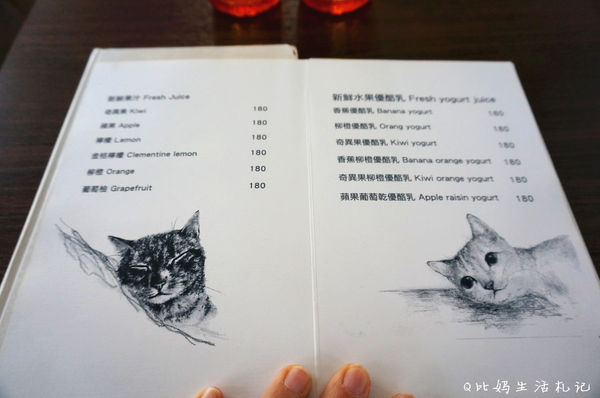 新鮮果汁 Fresh Juice
奇異果 Kiwi 180
蘋果 Apple 180
檸檬 Lemon 180
金桔檸檬 Clementine lemon 180
柳橙 Orange 180
葡萄柚 Grapefruit 180
新鮮水果優酪乳 Fresh yogurt juice
香蕉優酪乳 Banana yogurt 180
柳橙優酪乳 Orang yogurt 180
奇異果優酪乳 Kiwi yogurt 180
香蕉柳橙優酪乳 Banana orange yogurt 180
奇異果柳橙優酪乳 Kiwi orange yogurt 180
蘋果葡萄乾優酪乳 Apple raisin yogurt 180
Q比媽生活札記